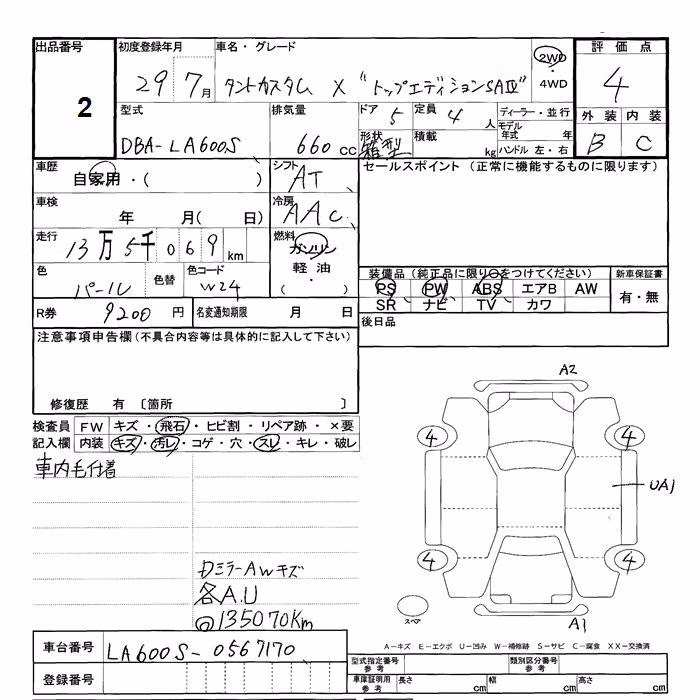 出品番号 2
初度登録年月 29 7月
車名・グレード タントカスタム X "トップエディションSAⅣ"
2WD・4WD
評価点 4
外装 B 内装 C
型式 DBA-LA600S
排気量 660 cc
ドア 5 定員 4人
形状 箱型 積載 kg
ディーラー・並行
モデル年式 年
ハンドル 左・右
車歴 自家用・( )
シフト AT
セールスポイント (正常に機能するものに限ります)
車検 年 月( 日)
冷房 AAC
走行 13万5千069km
燃料 ガソリン 軽油・( )
色 パール 色替 色コード W24
装備品(純正品に限り○をつけてください) 新車保証書
PS PW ABS エアB AW 有・無
SR ナビ TV カワ
R券 9200円 名変通知期限 月 日
後日品
注意事項申告欄(不具合内容等は具体的に記入して下さい)
修復歴 有 〔箇所 〕
検査員 FW キズ・飛石・ヒビ割・リペア跡・×要
記入欄 内装 キズ・汚レ・コゲ・穴・スレ・キレ・破レ
車内毛付着
A2
4 4
UA1
4 4
スペア
A1
DミラーAWキズ
各A.U
◎135070Km
A-キズ E-エクボ U-凹み W-補修跡 S-サビ C-腐食 XX-交換済
車台番号 LA600S-0567170
登録番号
型式指定番号 参考 類別区分番号 参考
車庫証明用 参考 長さ cm 幅 cm 高さ cm